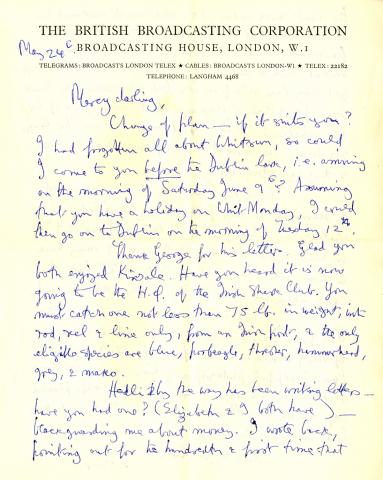 THE BRITISH BROADCASTING CORPORATION
BROADCASTING HOUSE, LONDON, W.1
TELEGRAMS: BROADCASTS LONDON TELEX ★ CABLES: BROADCASTS LONDON-W1 ★ TELEX: 22182
TELEPHONE: LANGHAM 4468
May 24
Mercy darling,
Change of plan — if it suits you?
I had forgotten all about Whitsun, so could
I come to you before the Dublin lark, i.e. arriving
on the morning of Saturday June 9? Assuming
that you have a holiday on Whit Monday, I could
then go on to Dublin on the morning of Tuesday 12th.
Thank George for his letter. Glad you
both enjoyed Kinsale. Have you heard it is now
going to be the H.Q. of the Irish Shark Club. You
must catch one not less than 75 lb. in weight, with
rod, reel & line only, from an Irish port, & the only
eligible species are blue, porbeagle, thresher, hammerhead,
grey, & mako.
Hedli by the way has been writing letters —
have you had one? (Elizabeth & I both have) —
blackguarding me about money. I wrote back,
pointing out for the hundredth & first time that